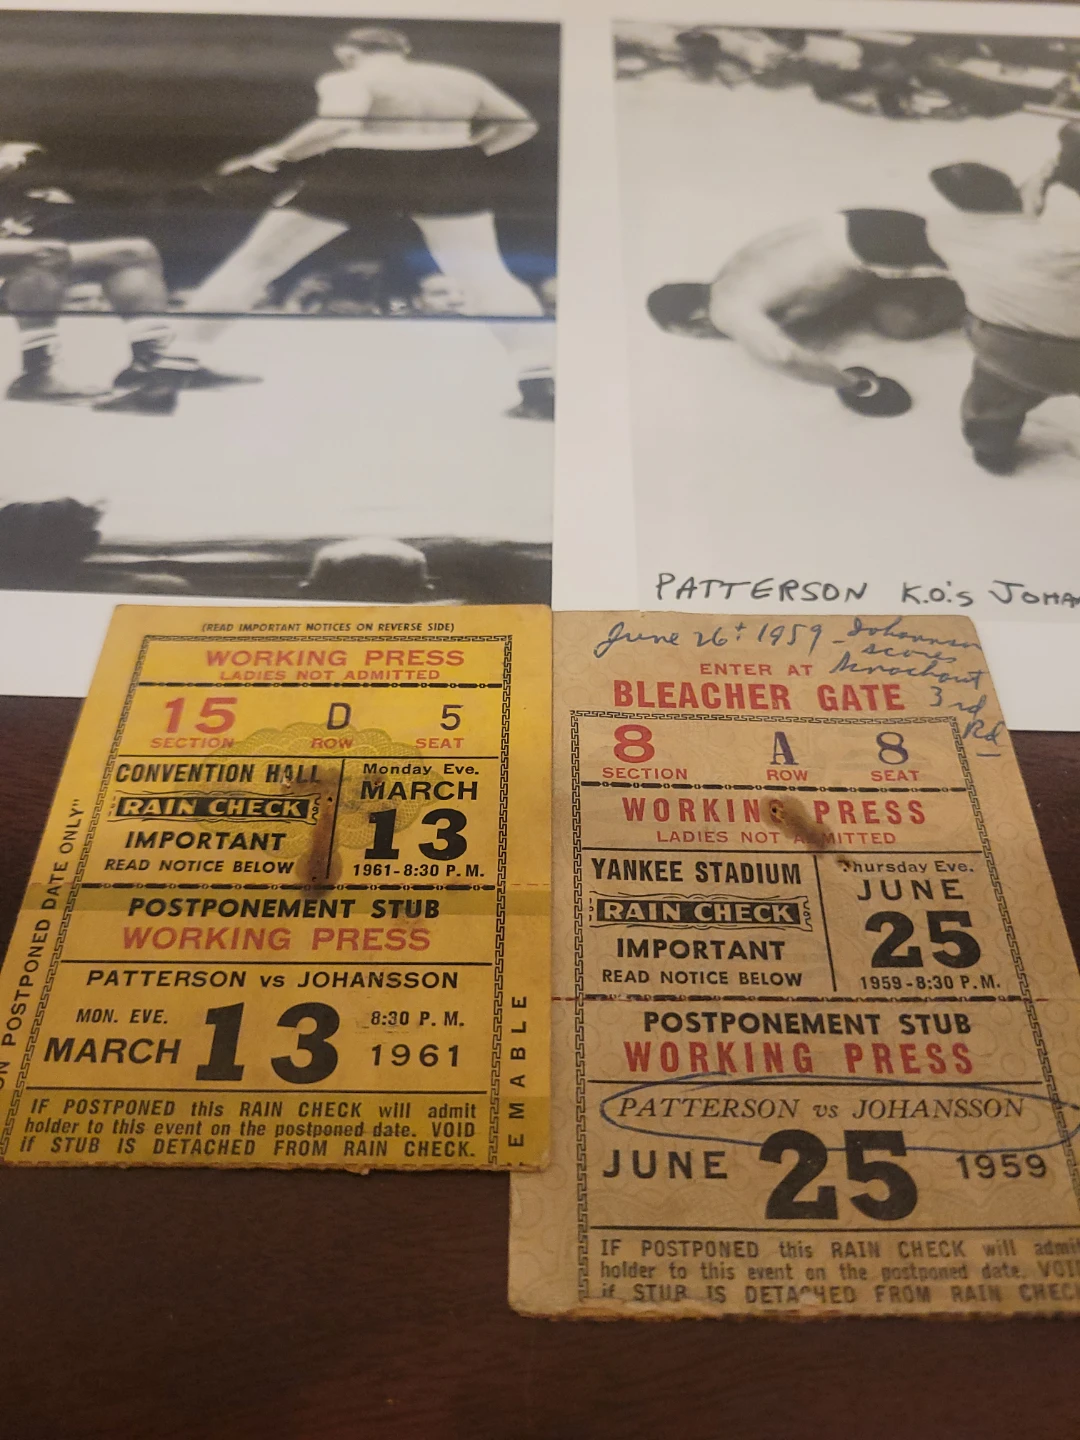 PATTERSON K.O.'s JOHA
(READ IMPORTANT NOTICES ON REVERSE SIDE)
WORKING PRESS
LADIES NOT ADMITTED
15 D 5
SECTION ROW SEAT
CONVENTION HALL
RAIN CHECK
IMPORTANT
READ NOTICE BELOW
Monday Eve.
MARCH
13
1961-8:30 P.M.
POSTPONEMENT STUB
WORKING PRESS
PATTERSON vs JOHANSSON
MON. EVE. 13 8:30 P. M.
MARCH 1961
IF POSTPONED this RAIN CHECK will admit
holder to this event on the postponed date. VOID
if STUB IS DETACHED FROM RAIN CHECK.
ON POSTPONED DATE ONLY"
EMABLE
June 26t 1959 - Johannson
scores
knockout
3rd
Rd
ENTER AT
BLEACHER GATE
8 A 8
SECTION ROW SEAT
WORKING PRESS
LADIES NOT ADMITTED
YANKEE STADIUM
RAIN CHECK
IMPORTANT
READ NOTICE BELOW
Thursday Eve.
JUNE
25
1959-8:30 P.M.
POSTPONEMENT STUB
WORKING PRESS
PATTERSON vs JOHANSSON
JUNE 25 1959
IF POSTPONED this RAIN CHECK will admit
holder to this event on the postponed date. VOID
if STUB IS DETACHED FROM RAIN CHEC